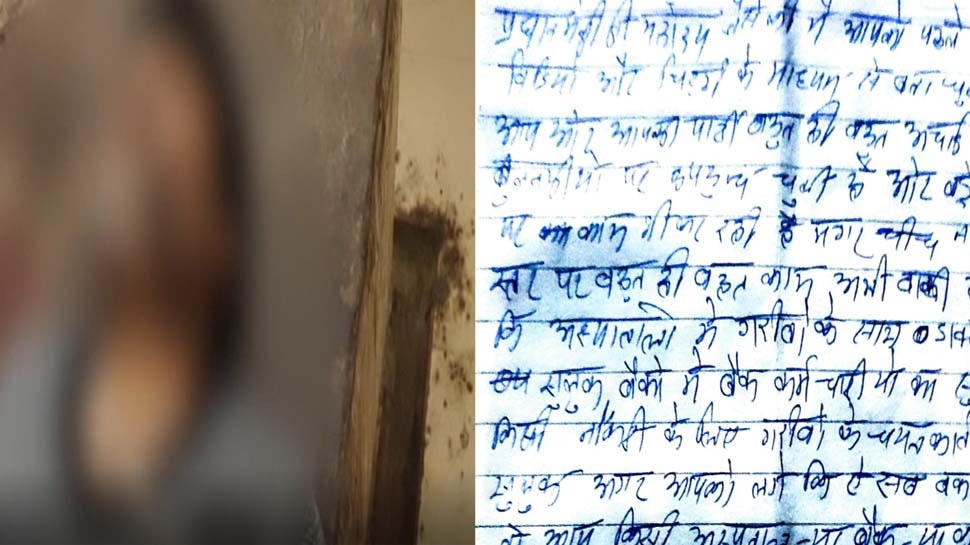 प्रधानमंत्री जी महोदय जैसे की मै आपको पहले
विडियो और चिठ्ठी के माध्यम से बता चु
आप और आपकी पार्टी बहुत ही बहुत अच्छे
पर पहुंच चुकी है और बड़े
पर काम भी कर रही है मगर नीचे
स्तर पर बहुत ही बहुत काम अभी बाकी
कि अस्पतालो मे गरीबो के साथ
सुलुक बैंको मे बैंक कर्मचारीयो का
किसी नौकरी के लिए गरीबो के चयन
सुलुक अगर आपको लगे कि ऐ सब बक
तो आप किसी अस्पताल-या बैंक-या